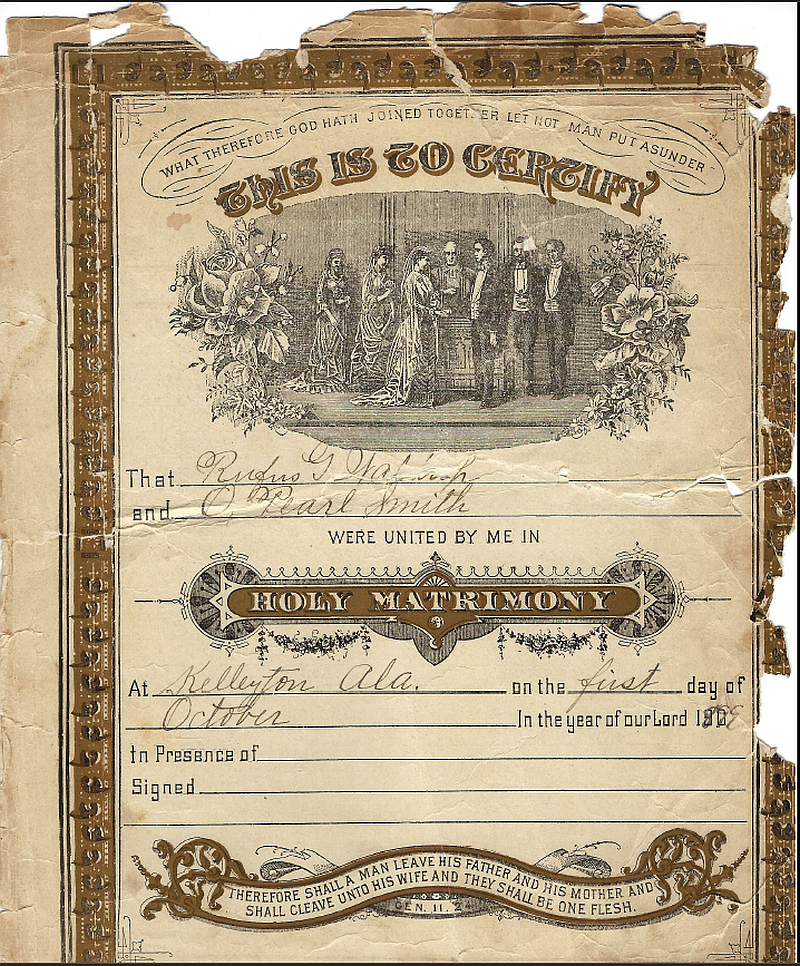 WHAT THEREFORE GOD HATH JOINED TOGETHER LET NOT MAN PUT ASUNDER
THIS IS TO CERTIFY
That Rufus G Waldrop
and O Pearl Smith
WERE UNITED BY ME IN
HOLY MATRIMONY
At Kelleyton Ala. on the first day of
October In the year of our Lord 1899
In Presence of
Signed
THEREFORE SHALL A MAN LEAVE HIS FATHER AND HIS MOTHER AND
SHALL CLEAVE UNTO HIS WIFE AND THEY SHALL BE ONE FLESH.
GEN. 11. 24